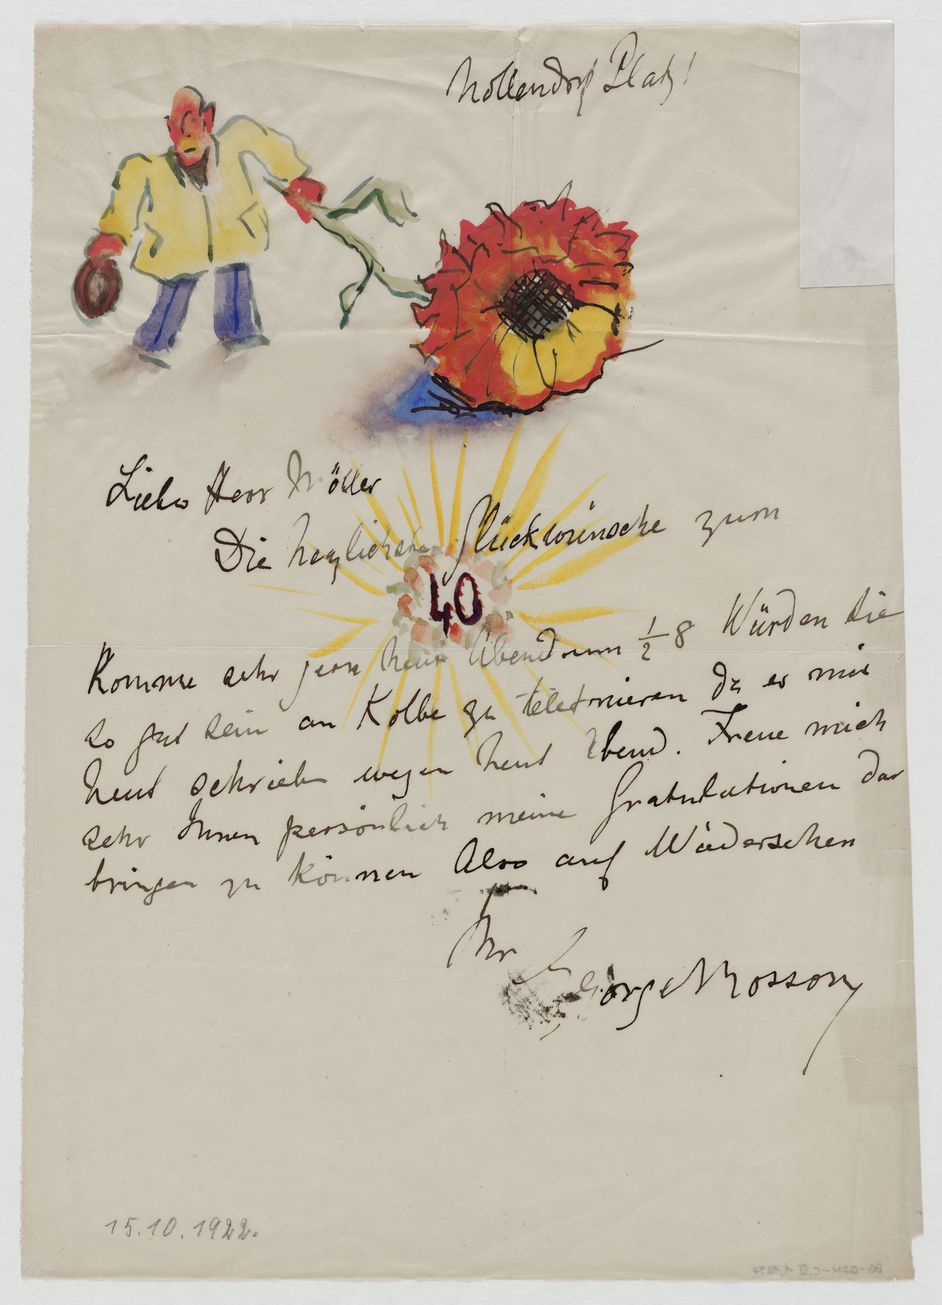 Nollendorf Platz!
Lieber Herr Möller
Die herzlichsten Glückwünsche zum
40
Komme sehr gern heut Abend um 1/2 8 Würden Sie
so gut sein an Kolbe zu telefonieren da er mir
heut schrieb wegen heut Abend. Freue mich
sehr Ihnen persönlich meine Gratulationen dar
bringen zu können Also auf Wiedersehen
Ihr
George Mosson
15.10.1922.